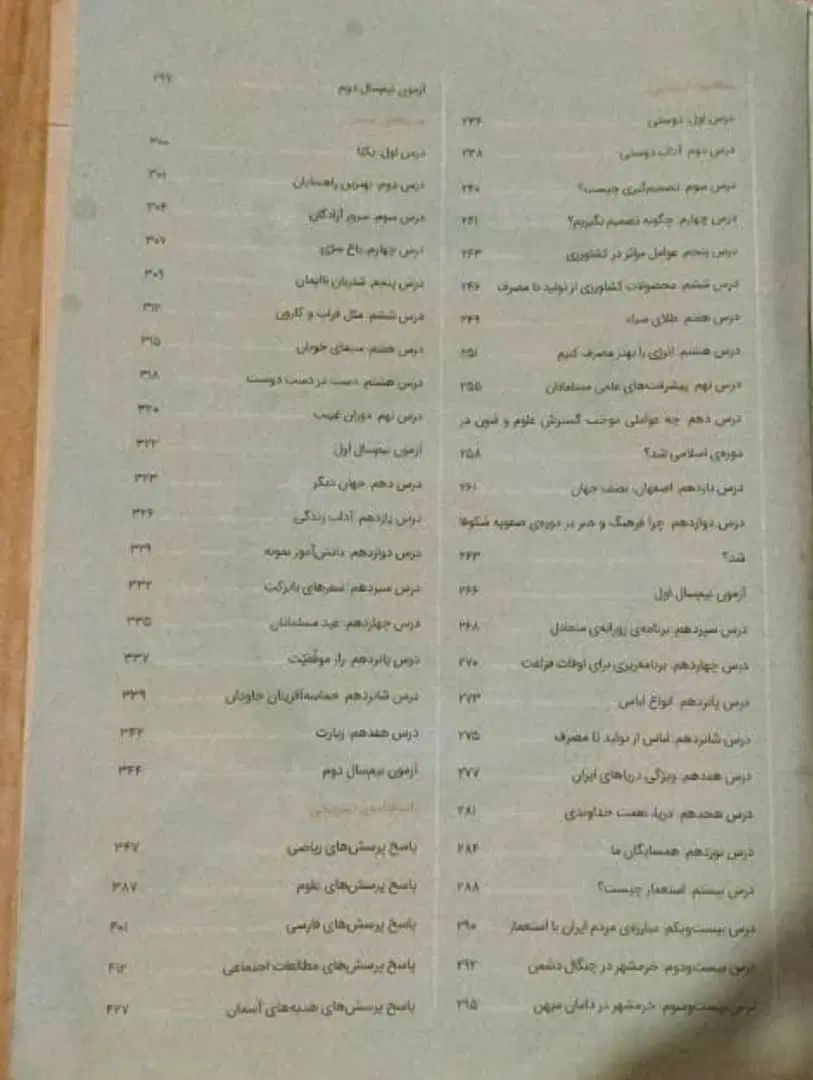 مطالعات اجتماعی
درس اول: دوستی ۲۳۶
درس دوم: آداب دوستی ۲۳۸
درس سوم: تصمیم‌گیری چیست؟ ۲۴۰
درس چهارم: چگونه تصمیم بگیریم؟ ۲۴۱
درس پنجم: عوامل مؤثر در کشاورزی ۲۴۳
درس ششم: محصولات کشاورزی از تولید تا مصرف ۲۴۶
درس هفتم: طلای سیاه ۲۴۹
درس هشتم: انرژی را بهتر مصرف کنیم ۲۵۱
درس نهم: پیشرفت‌های علمی مسلمانان ۲۵۵
درس دهم: چه عواملی موجب گسترش علوم و فنون در
دوره‌ی اسلامی شد؟ ۲۵۸
درس یازدهم: اصفهان، نصف جهان ۲۶۱
درس دوازدهم: چرا فرهنگ و هنر در دوره‌ی صفویه شکوفا
شد؟ ۲۶۳
آزمون نیم‌سال اول ۲۶۶
درس سیزدهم: برنامه‌ی روزانه‌ی متعادل ۲۶۸
درس چهاردهم: برنامه‌ریزی برای اوقات فراغت ۲۷۰
درس پانزدهم: انواع لباس ۲۷۳
درس شانزدهم: لباس از تولید تا مصرف ۲۷۵
درس هفدهم: ویژگی دریاهای ایران ۲۷۷
درس هجدهم: دریا، نعمت خداوندی ۲۸۱
درس نوزدهم: همسایگان ما ۲۸۴
درس بیستم: استعمار چیست؟ ۲۸۸
درس بیست‌ویکم: مبارزه‌ی مردم ایران با استعمار ۲۹۰
درس بیست‌ودوم: خرمشهر در چنگال دشمن ۲۹۲
درس بیست‌وسوم: خرمشهر در دامان میهن ۲۹۵
آزمون نیم‌سال دوم ۲۹۷
درس اول: یکتا ۳۰۰
درس دوم: بهترین راهنمایان ۳۰۱
درس سوم: سرور آزادگان ۳۰۴
درس چهارم: باغ سری ۳۰۷
درس پنجم: شتربان باایمان ۳۰۹
درس ششم: مثل فرات و کارون ۳۱۲
درس هفتم: سیمای خوبان ۳۱۵
درس هشتم: دست در دست دوست ۳۱۸
درس نهم: دوران غیبت ۳۲۰
آزمون نیم‌سال اول ۳۲۲
درس دهم: جهان دیگر ۳۲۳
درس یازدهم: آداب زندگی ۳۲۶
درس دوازدهم: دانش‌آموز نمونه ۳۲۹
درس سیزدهم: سفرهای بابرکت ۳۳۲
درس چهاردهم: عید مسلمانان ۳۳۵
درس پانزدهم: راز موفّقیّت ۳۳۷
درس شانزدهم: حماسه‌آفرینان جاویدان ۳۳۹
درس هفدهم: زیارت ۳۴۲
آزمون نیم‌سال دوم ۳۴۴
پاسخ‌نامه‌ی تشریحی
پاسخ پرسش‌های ریاضی ۳۴۷
پاسخ پرسش‌های علوم ۳۸۷
پاسخ پرسش‌های فارسی ۴۰۱
پاسخ پرسش‌های مطالعات اجتماعی ۴۱۲
پاسخ پرسش‌های هدیه‌های آسمان ۴۲۷